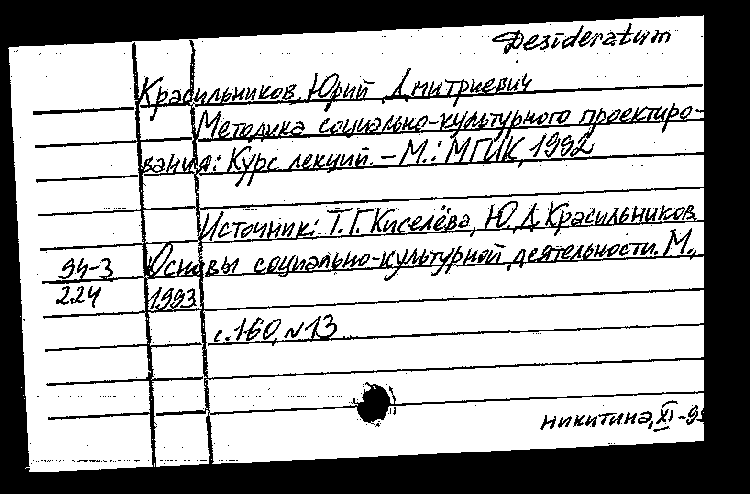 Desideratum
Красильников Юрий Дмитриевич
Методика социально-культурного проектиро-
вания: Курс лекций. - М.: МГИК, 1992
Источник: Т.Г. Киселёва, Ю.Д. Красильников
94-3 Основы социально-культурной деятельности. М.,
224 1993
с. 160, N 13
Никитина, XI-